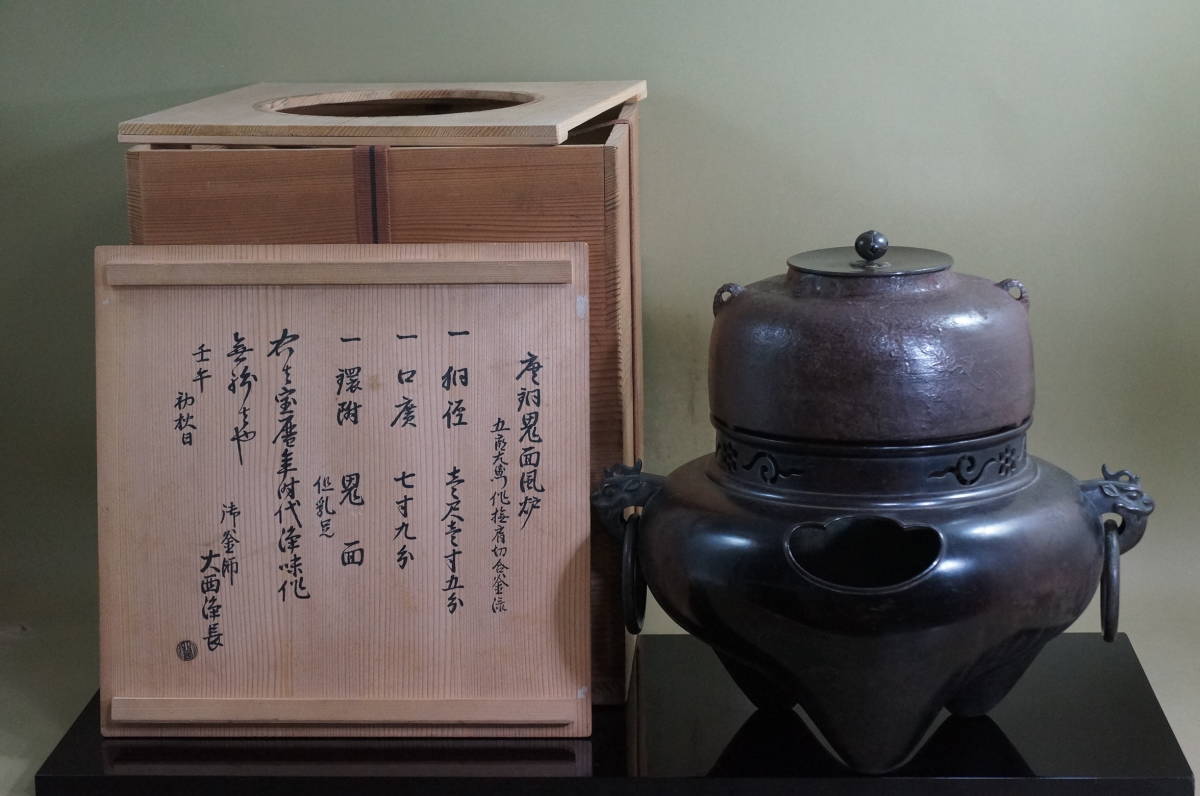 唐銅鬼面風炉
五郎左衛門作撫肩切合釜添
一 胴径 壱尺壱寸五分
一 口廣 七寸九分
一 環附 鬼面
但乳足
右者宝暦年時代浄味作
無紛者也
壬午 初秋日
御釜師
大西浄長